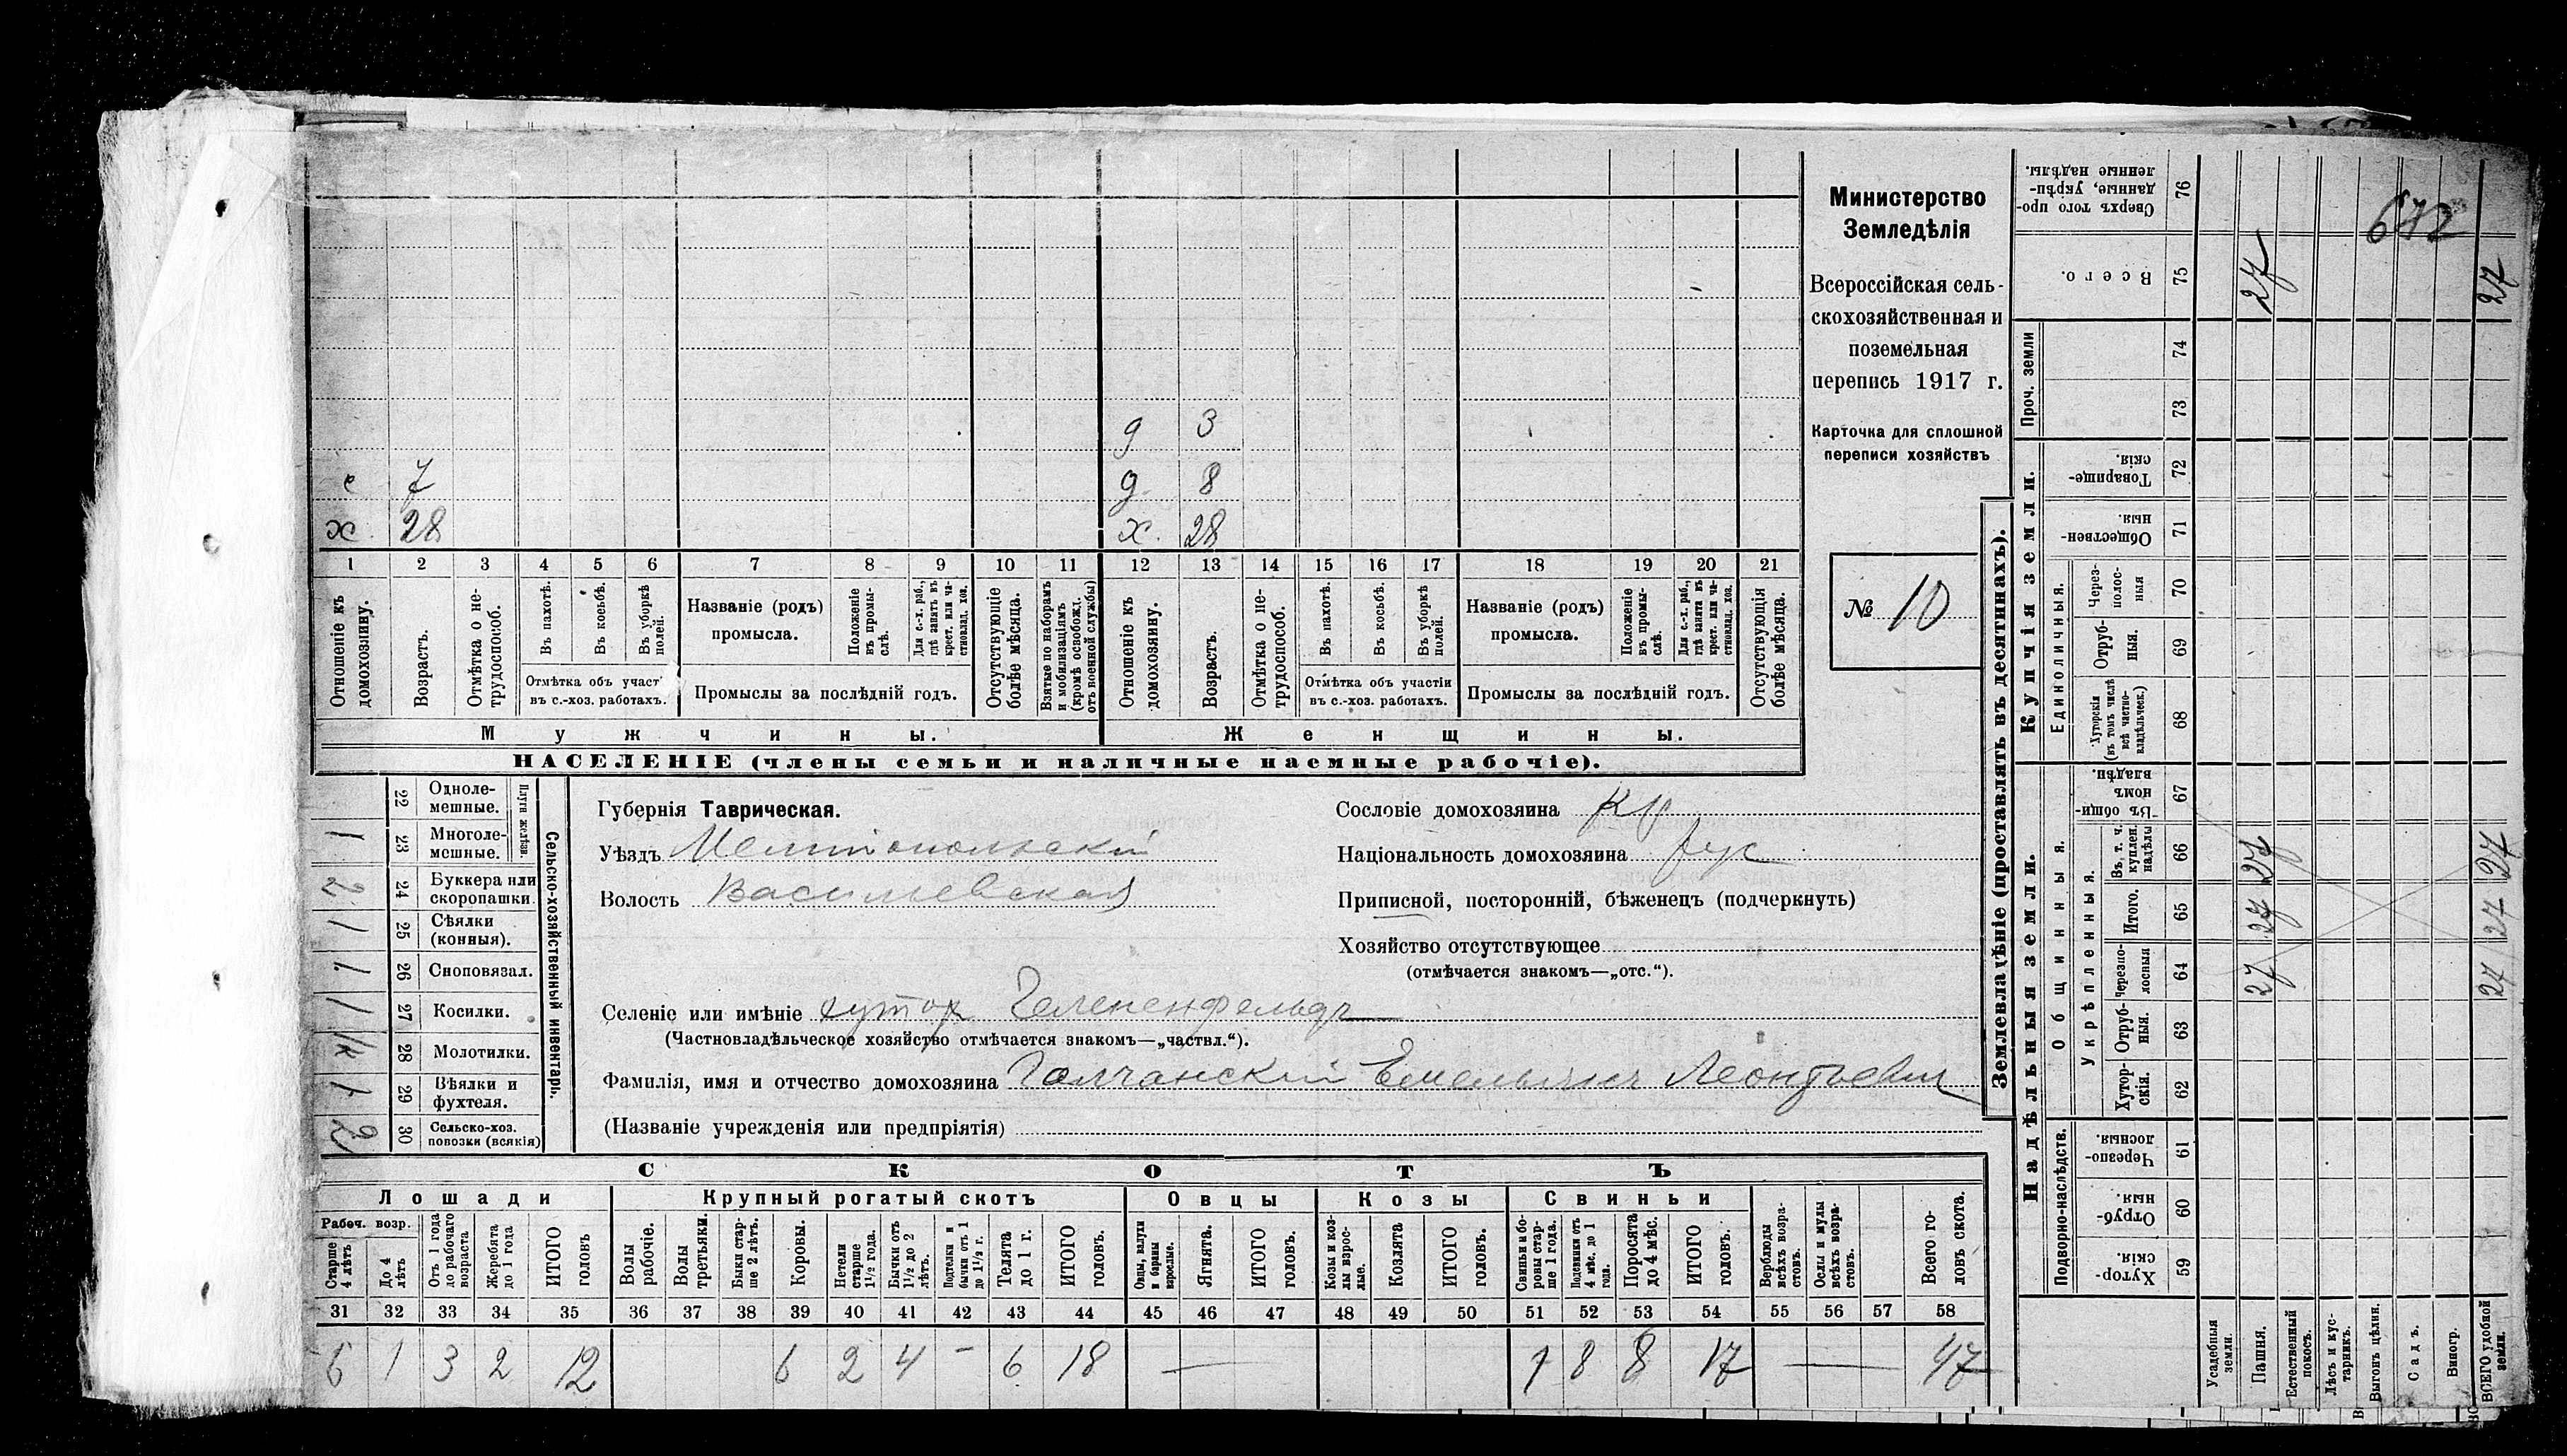 х. 28
с 7
х. 28
д. 8
д 3
1 2 3 4 5 6 7 8 9 10 11 12 13 14 15 16 17 18 19 20 21
Отношеніе къ домохозяину.
Возрастъ.
Отмѣтка о не-трудоспособ.
Въ пахотѣ.
Въ косьбѣ.
Въ уборкѣ полей.
Отмѣтка объ участ
въ с.-хоз. работахъ.
Названіе (родъ)
промысла.
Положеніе въ промы-слѣ.
Для с.-х. раб., гдѣ занятъ въ крест. или ча-стновлад. хоз.
Промыслы за послѣдній годъ.
Отсутствующіе болѣе мѣсяца.
Взятые по наборамъ и мобилизаціямъ (кромѣ освобожд. отъ военной службы)
Отношеніе къ домохозяину.
Возрастъ.
Отмѣтка о не-трудоспособ.
Въ пахотѣ.
Въ косьбѣ.
Въ уборкѣ полей.
Отмѣтка объ участіи
въ с.-хоз. работахъ.
Названіе (родъ)
промысла.
Положеніе въ промы-слѣ.
Для с.-х. раб., гдѣ занята въ крест. или ча-стновлад. хоз.
Промыслы за послѣдній годъ.
Отсутствующія болѣе мѣсяца.
Мужчины.
Женщины.
НАСЕЛЕНІЕ (члены семьи и наличные наемные рабочіе).
Министерство
Земледѣлія
Всероссійская сель-
скохозяйственная и
поземельная
перепись 1917 г.
Карточка для сплошной
переписи хозяйствъ
№ 10
Сельско-хозяйственный инвентарь.
Плуги желѣзн.
22 Одноле-мешные.
1 23 Многоле-мешные.
2 24 Буккера или скоропашки.
1 25 Сѣялки (конныя).
1. 26 Сноповязал.
1 27 Косилки.
28 Молотилки.
1 29 Вѣялки и фухтеля.
2 30 Сельско-хоз. повозки (всякія)
Губернія Таврическая.
Уѣздъ Мелитопольскій
Волость Васильевская
Сословіе домохозяина кр
Національность домохозяина рус
Приписной, посторонній, бѣженецъ (подчеркнуть)
Хозяйство отсутствующее
(отмѣчается знакомъ—„отс.“).
Селеніе или имѣніе хутор Гелененфельдъ
(Частновладѣльческое хозяйство отмѣчается знакомъ—„частвл.“).
Фамилія, имя и отчество домохозяина Галчанскій Емельянъ Леонтьевич
(Названіе учрежденія или предпріятія)
СКОТЪ
Лошади
Крупный рогатый скотъ
Овцы
Козы
Свиньи
Рабоч. возр.
Старше 4 лѣтъ
До 4 лѣтъ
Отъ 1 года до рабочаго возраста
Жеребята до 1 года
ИТОГО головъ
Волы рабочіе.
Волы третьяки.
Быки стар-ше 2 лѣтъ.
Коровы.
Нетели старше 1½ года.
Бычки отъ 1½ до 2 лѣтъ.
Подтелки и бычки отъ 1 до 1½ г.
Телята до 1 г.
ИТОГО головъ.
Овцы, валухи и бараны взрослые.
Ягнята.
ИТОГО головъ.
Козы и коз-лы взрос-лые.
Козлята
ИТОГО головъ.
Свиньи и бо-ровы стар-ше 1 года.
Подсвинки отъ 4 мѣс. до 1 года.
Поросята до 4 мѣс.
ИТОГО головъ.
Верблюды всѣхъ возра-стовъ.
Ослы и мулы всѣхъ возра-стовъ.
Всего го-ловъ скота.
31 32 33 34 35 36 37 38 39 40 41 42 43 44 45 46 47 48 49 50 51 52 53 54 55 56 57 58
6 1 3 2 12 6 2 4 - 6 18 — 1 8 8 17 — 47
Землевладѣніе (проставлять въ десятинахъ).
Надѣльныя земли.
Купчія земли.
Проч. земли
Подворно-наслѣдств.
Общинныя.
Укрѣпленныя.
Единоличныя.
Сверхъ того про-данные, укрѣп-ленные надѣлы. 76
Всего. 75 27 27
74
73
Товарище-скія. 72
Обществен-ныя 71
Через-полос-ныя 70
Отруб-ныя. 69
Хуторскія (въ томъ числѣ всѣ частно-владѣльческ.) 68
Въ общи-номъ владѣн. 67
Въ т. ч. куплен. надѣлы 66 27 27
Итого. 65 27 27
Черезпо-лосныя 64 27 27
Отруб-ныя. 63
Хутор-скія. 62
Черезпо-лосныя. 61
Отруб-ныя. 60
Хутор-скія. 59
Усадебныя земли.
Пашня.
Естественный покосъ.
Лѣсъ и кус-тарникъ.
Выгонъ цѣлин.
Садъ.
Виногр.
ВСЕГО удобной земли.
672